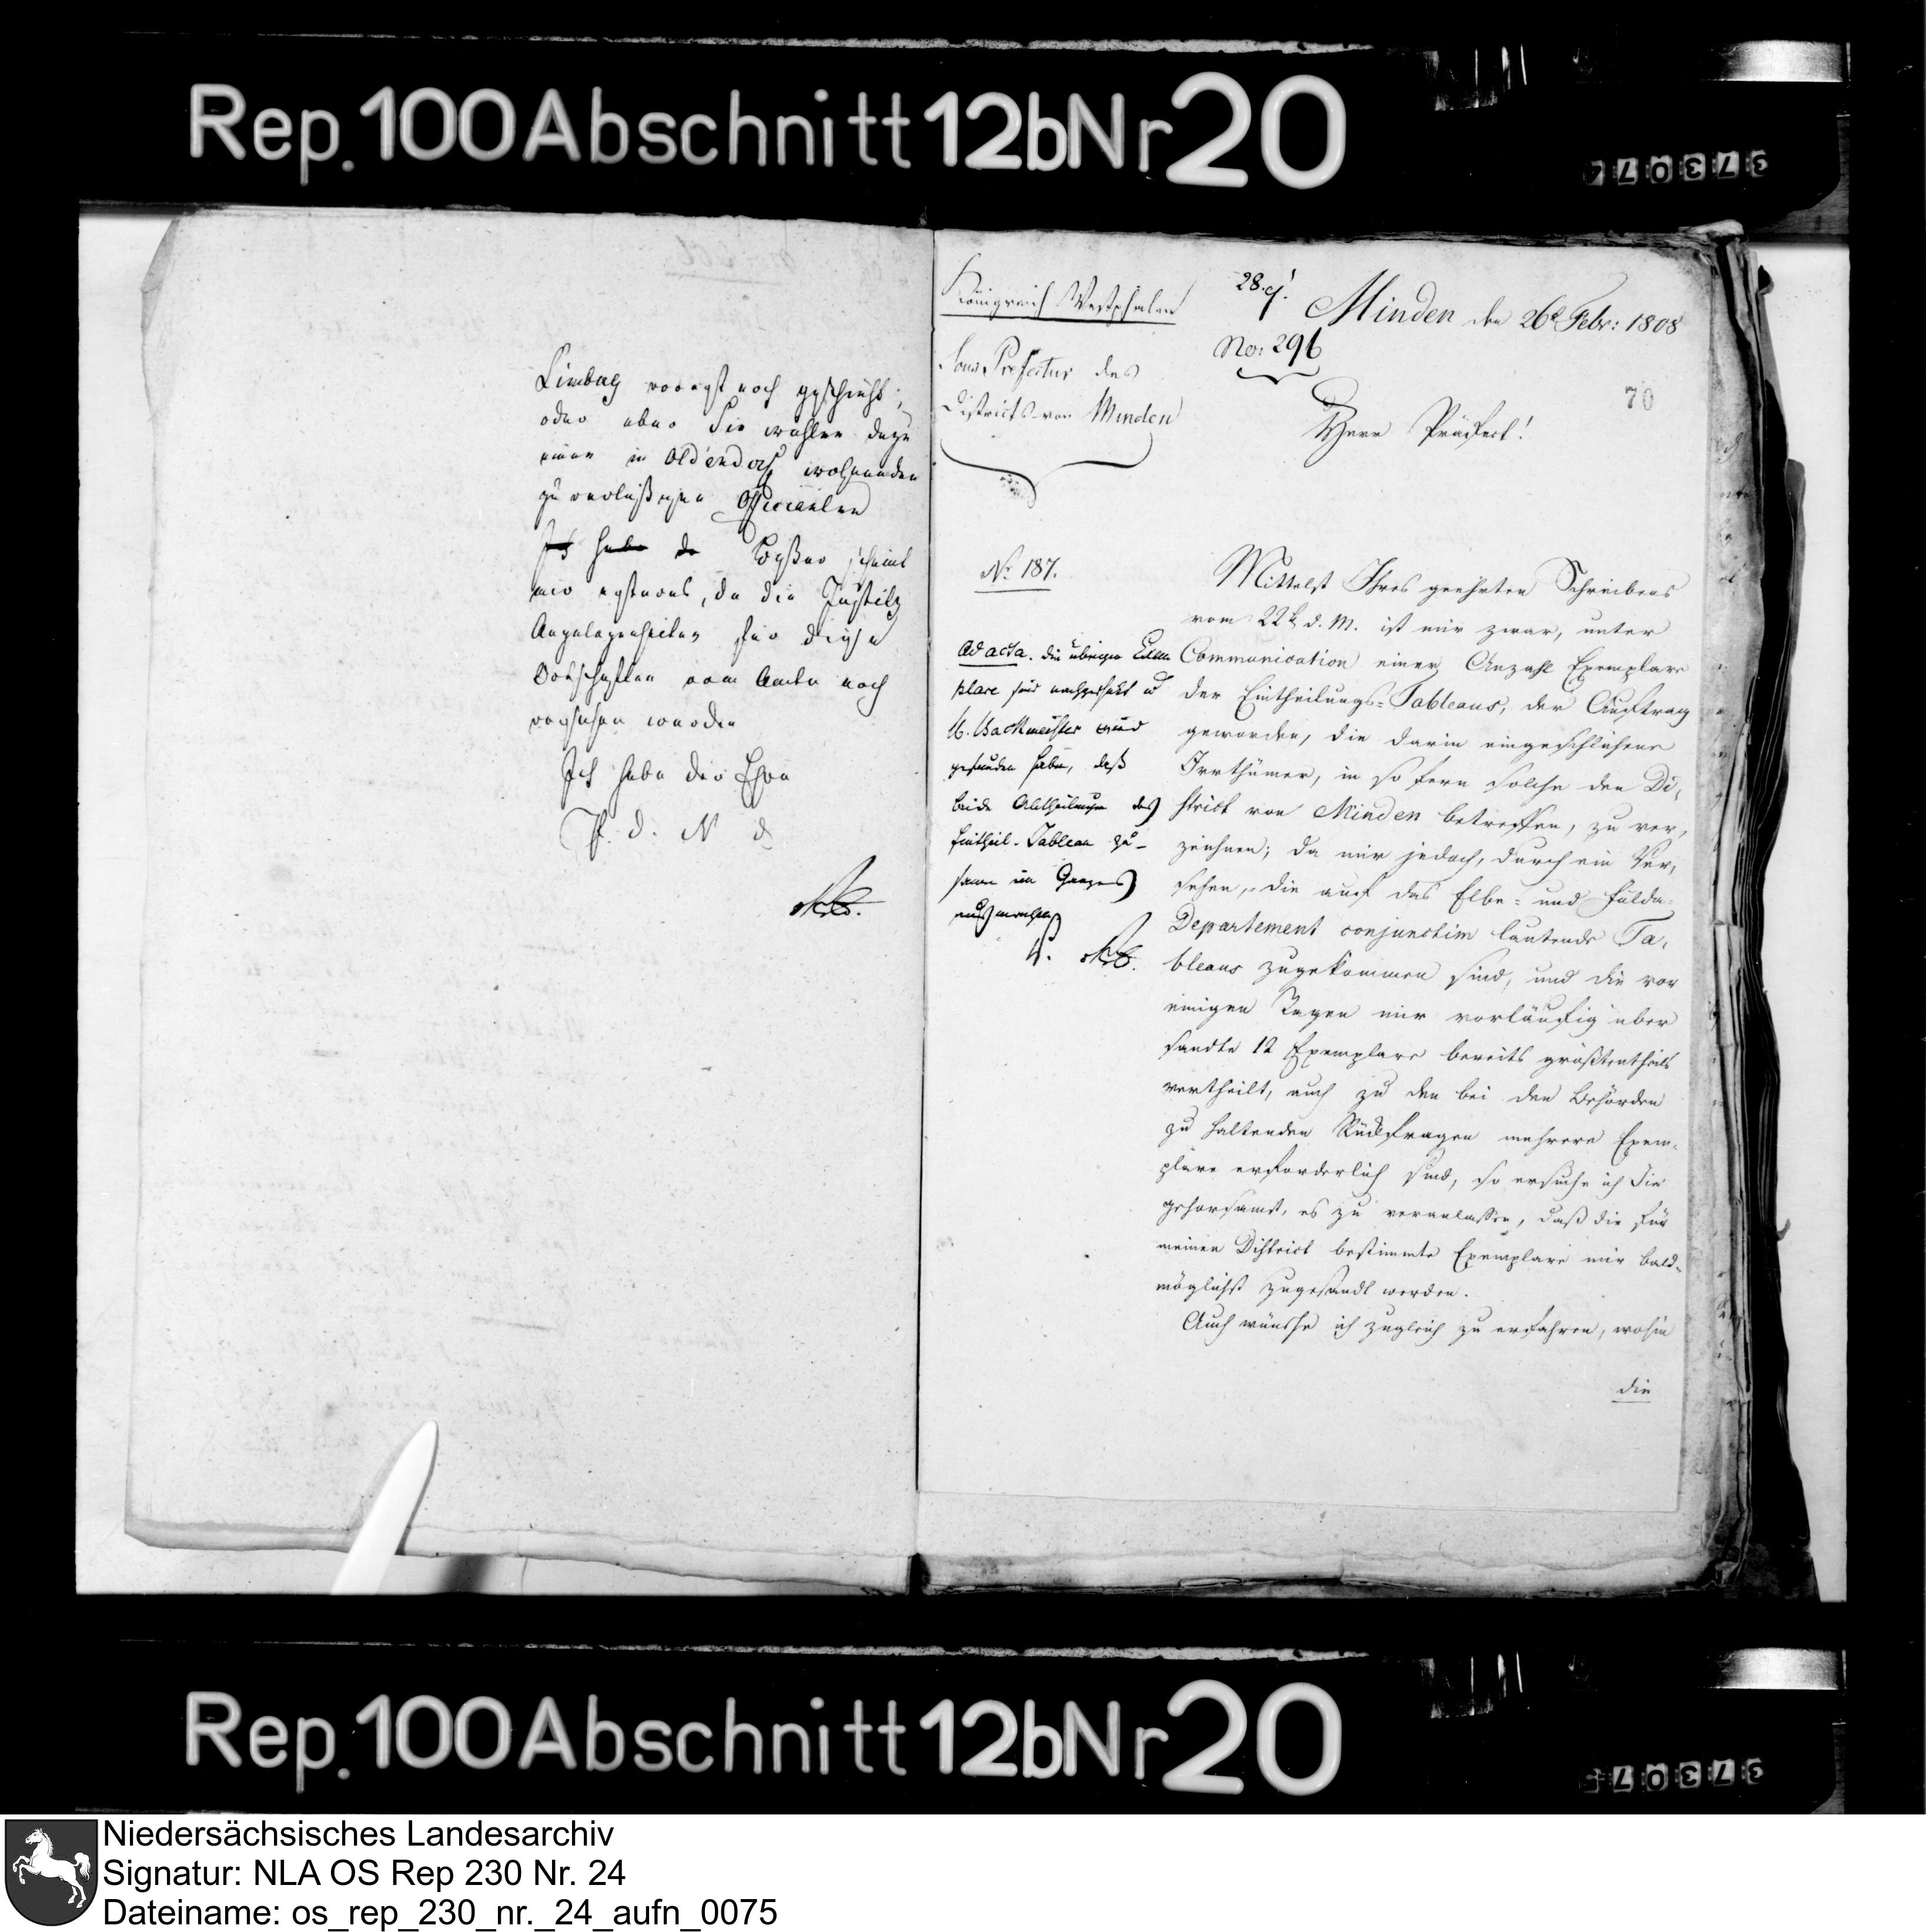 Rep. 100 Abschnitt 12b Nr 20
Limberg vorerst noch geschieht,
oder aber Sie wählen dazu
einen in Oldendorf wohnenden
zuverläßigen Officianten
Ich habe Letzteres scheint
mir , da die Justitz
Angelegenheiten für diese
Ortschaften vom Amte noch
versehen werden
Ich habe die Ehre
P. d. N d
Königreich Westphalen
Sous Prefectur des
Districts von Minden
28.
No: 296
Minden den 26t Febr: 1808
70
Herr Präfect!
No 187.
ad acta. die übrigen Exem
plare sind nachgesehen
gefunden haben, daß
beide Abtheilungen des
Eintheil. Tableau zu-
samen im Ganzen
ausmachen
Mittelst Ihres geehrten Schreibens
vom 22t d. M. ist mir zwar, unter
Communication einer Anzahl Exemplare
der Eintheilungs-Tableaus, der Auftrag
geworden, die darin eingeschlichene
Irrthümer, in so fern solche den Di,
strict von Minden betreffen, zu ver,
zeichnen; da mir jedoch, durch ein Ver,
sehen, die auf das Elbe- und Fulda-
Departement conjunctim lautende Ta,
bleaus zugekommen sind, und die vor
einigen Tagen mir vorläufig über
sandte 12 Exemplare bereits größtentheils
vertheilt, auch zu den bei den Behörden
zu haltenden Rückfragen mehrere Exem-
plare erforderlich sind, so ersuche ich Sie
gehorsamst, es zu veranlassen, daß die für
meinen District bestimmte Exemplare mir bald-
möglichst zugesandt werden.
Auch wünsche ich zugleich zu erfahren, wohin
die
Rep. 100 Abschnitt 12b Nr 20
Niedersächsisches Landesarchiv
Signatur: NLA OS Rep 230 Nr. 24
Dateiname: os_rep_230_nr._24_aufn_0075